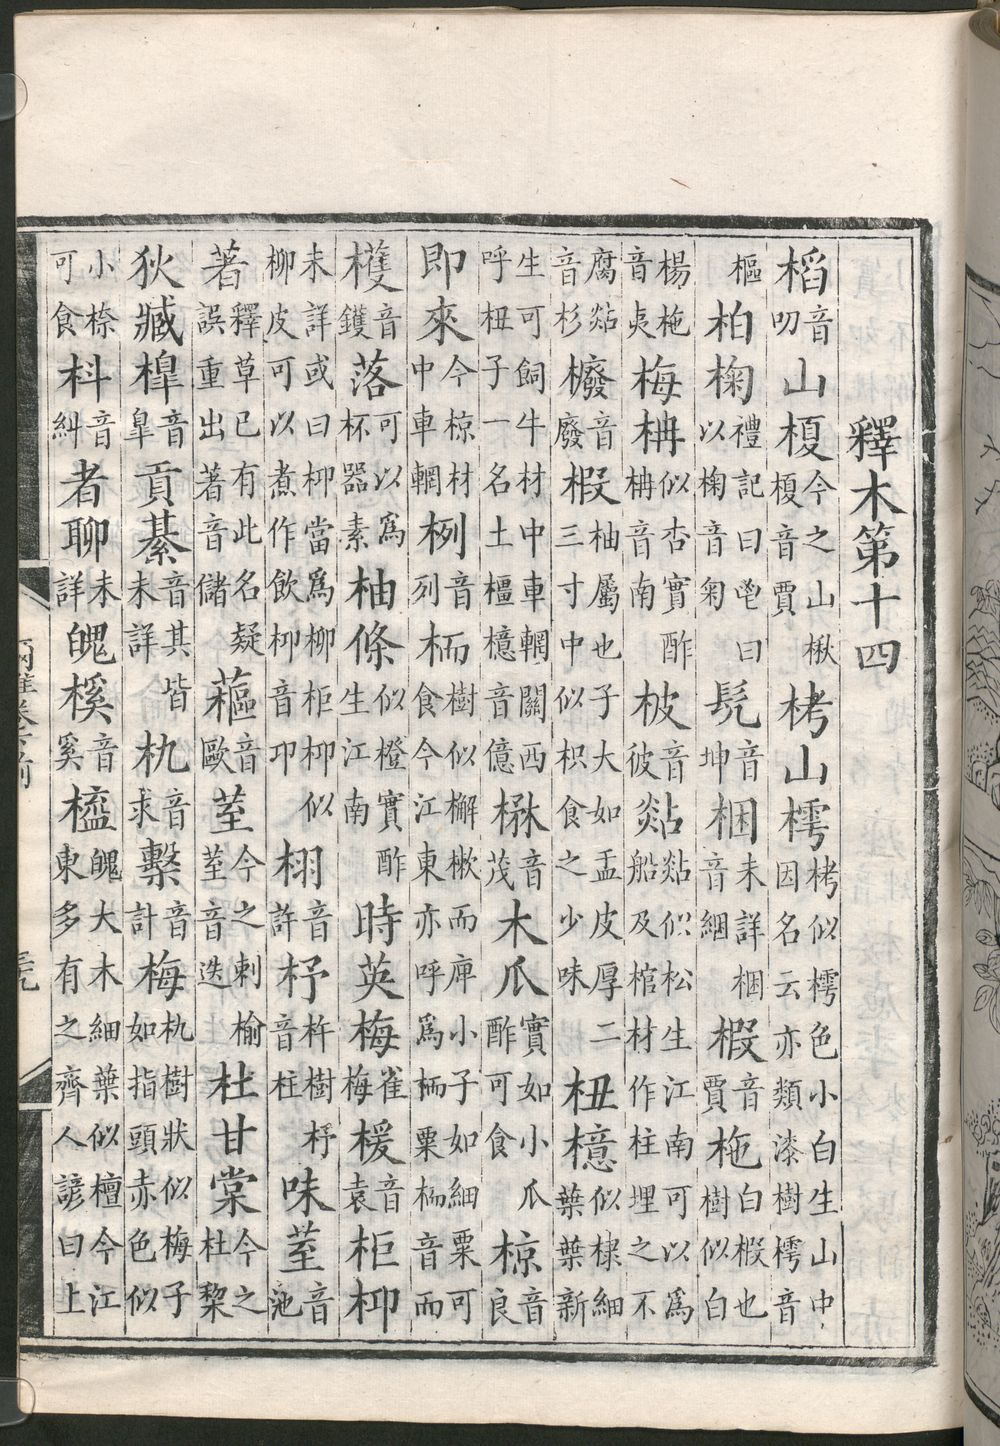 釋木第十四
槄音叨山榎今之山楸榎音賈栲山樗栲似樗色小白生山中因名云亦類漆樹樗音
樞柏椈禮記曰鬯曰以椈音菊髡音坤梱未詳梱音綑椵音賈柂白椵也樹似白
楊柂音夷梅柟似杏實酢柟音南柀音彼煔煔似松生江南可以為船及棺材作柱埋之不
腐煔音杉櫠音廢椵柚屬也子大如盂皮厚二三寸中似枳食之少味杻檍似棣細葉葉新
生可飼牛材中車輞關西呼杻子一名土橿檍音億楙音茂木瓜實如小瓜酢可食椋音良
即來今椋材中車輞栵音列栭樹似檞樕而庳小子如細栗可食今江東亦呼為栭栗栭音而
檴音鑊落可以為杯器素柚條似橙實酢生江南時英梅雀梅楥音袁柜枊
未詳或曰枊當為柳柜枊似柳皮可以煮作飲枊音卬栩音許杼杵樹杼音柱味荎音池
著釋草已有此名疑誤重出著音儲蓲音歐荎今之刺榆荎音迭杜甘棠今之杜棃
狄臧槔音皐貢綦音其皆未詳朹音求檕音計梅朹樹狀似梅子如指頭赤色似
小㮈可食朻音糾者聊未詳魄榽音奚榼魄大木細葉似檀今江東多有之齊人諺曰上